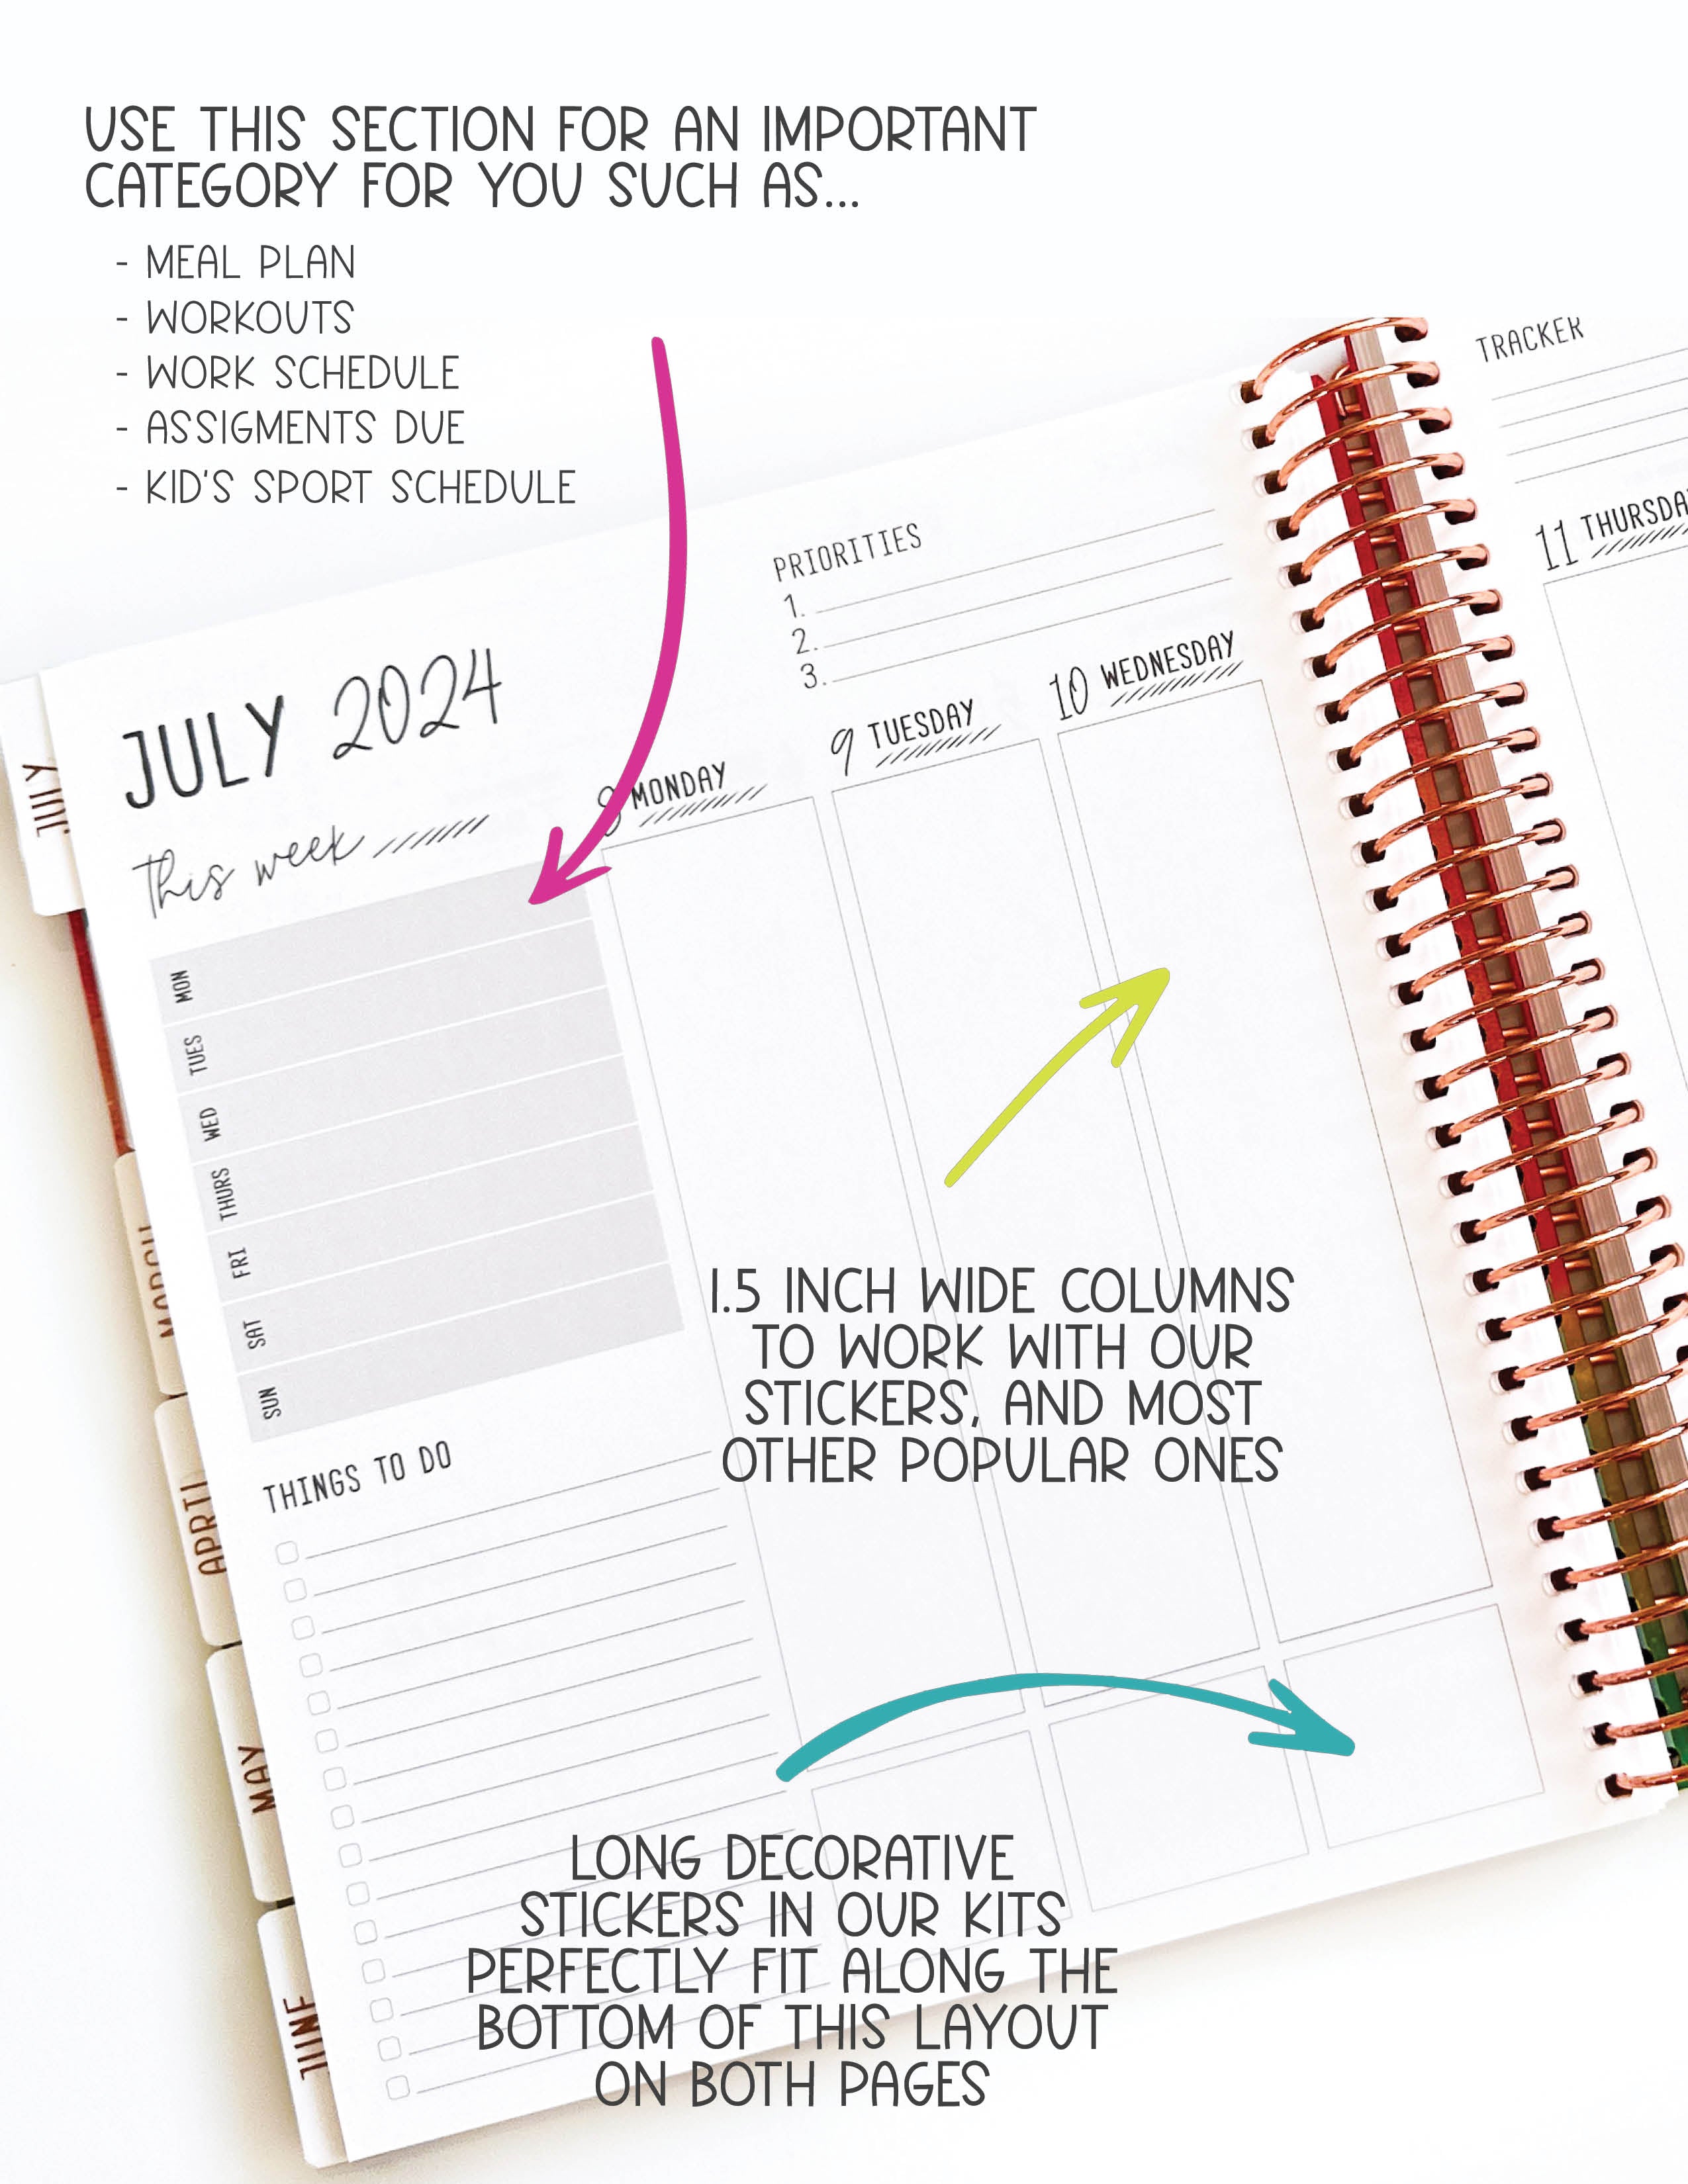 USE THIS SECTION FOR AN IMPORTANT
CATEGORY FOR YOU SUCH AS...
- MEAL PLAN
- WORKOUTS
- WORK SCHEDULE
- ASSIGMENTS DUE
- KID'S SPORT SCHEDULE
TRACKER
PRIORITIES
1.
2.
3.
11 THURSDA
10 WEDNESDAY
9 TUESDAY
8 MONDAY
JULY 2024
This week
MON
TUES
WED
THURS
FRI
SAT
SUN
THINGS TO DO
1.5 INCH WIDE COLUMNS
TO WORK WITH OUR
STICKERS, AND MOST
OTHER POPULAR ONES
LONG DECORATIVE
STICKERS IN OUR KITS
PERFECTLY FIT ALONG THE
BOTTOM OF THIS LAYOUT
ON BOTH PAGES
JULY
MARCH
APRIL
MAY
JUNE